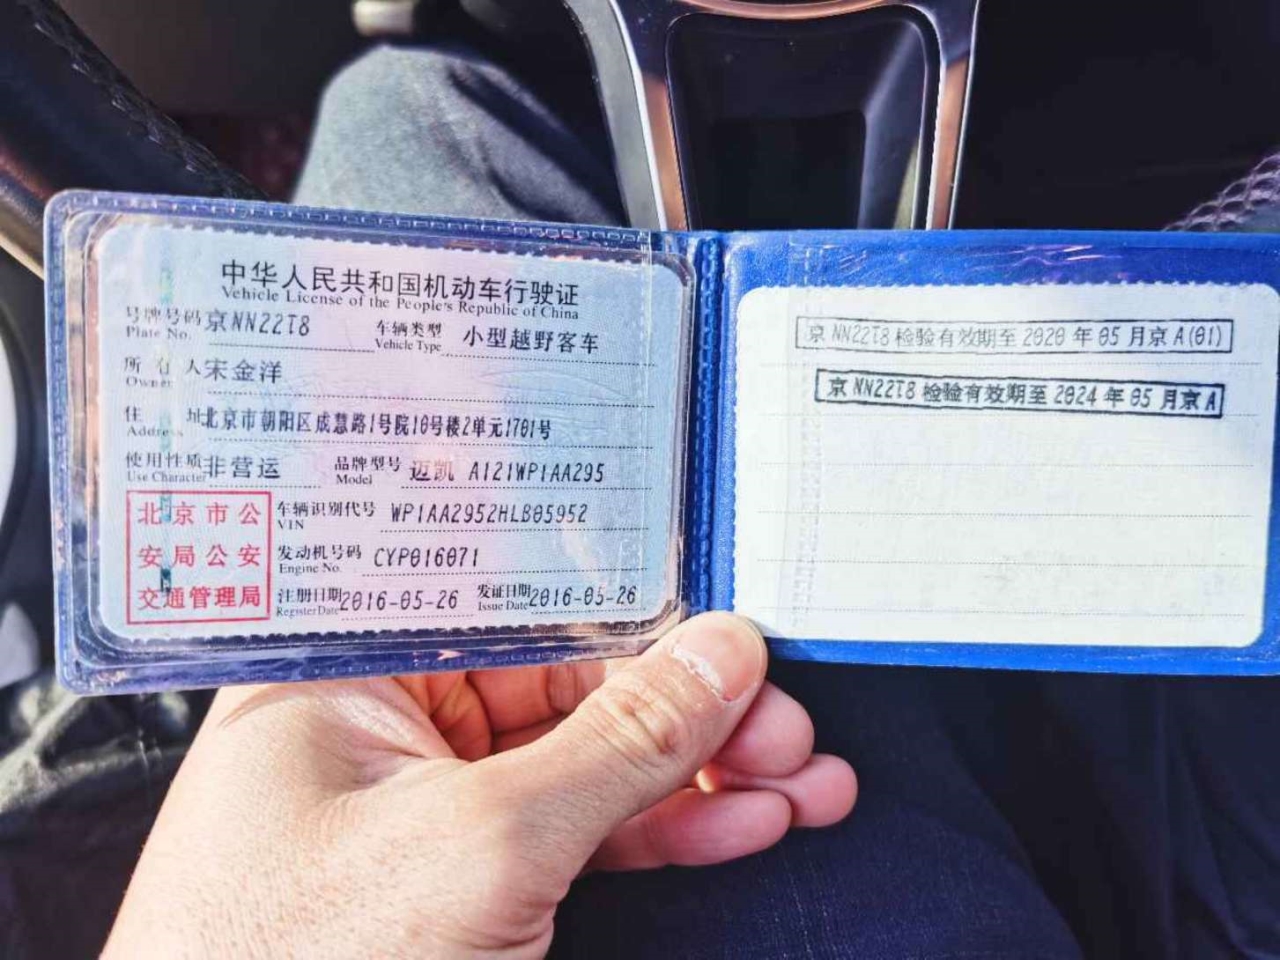 中华人民共和国机动车行驶证
Vehicle License of the People's Republic of China
号牌号码 京NN22T8 车辆类型 小型越野客车
Plate No. Vehicle Type
所有人 宋金洋
Owner
住址 北京市朝阳区成慧路1号院10号楼2单元1701号
Address
使用性质 非营运 品牌型号 迈凯 A121WP1AA295
Use Character Model
北京市公
安局公安
交通管理局
车辆识别代号 WP1AA2952HLB05952
VIN
发动机号码 CYP016071
Engine No.
注册日期 2016-05-26 发证日期 2016-05-26
Register Date Issue Date
京NN22T8检验有效期至2020年05月京A(01)
京NN22T8检验有效期至2024年05月京A